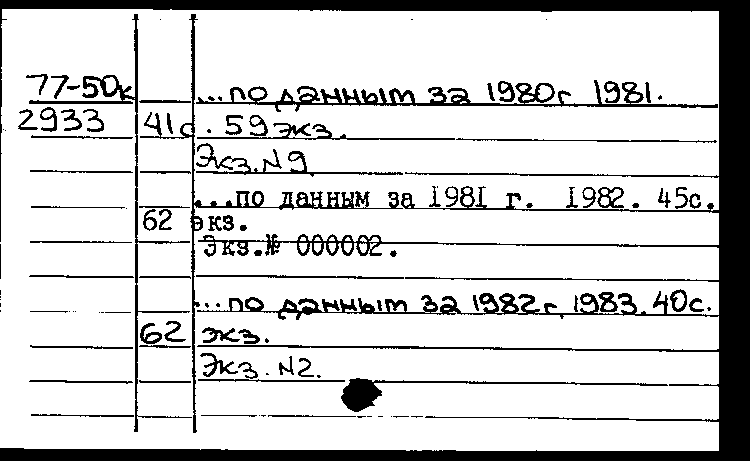 77-50к ...по данным за 1980г 1981.
2933 41с. 59экз.
Экз.N9
...по данным за 1981 г. 1982. 45с.
62 экз.
Экз.№ 000002.
...по данным за 1982г. 1983. 40с.
62 экз.
Экз. N2.